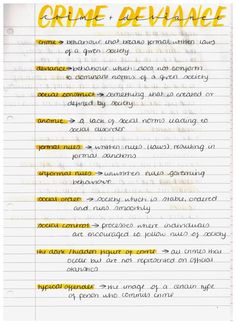 CRIME + DEVIANCE
crime → behaviour that breaks formal written laws
of a given society
deviance → behaviour which does not conform
to dominant norms of a given society
social construct → something that is created or
defined by society
anomie → a lack of social norms leading to
social disorder
formal rules → written rules (laws) resulting in
formal sanctions
informal rules → unwritten rules governing
behaviour
social order → society which is stable, ordered
and runs smoothly
social control → processes where individuals
are encouraged to follow rules of society
the dark/hidden figure of crime → all crimes that
occur but are not represented on official
statistics
typical offender → the image of a certain type
of person who commits crime